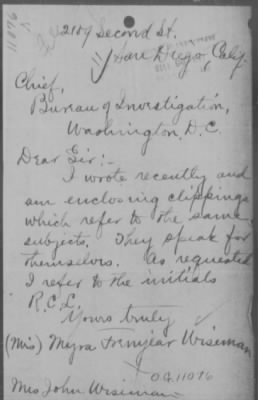 11076
2109 Second St.
San Diego, Calif.
Chief,
Bureau of Investigation,
Washington, D.C.
Dear Sir:-
I wrote recently and
am enclosing clippings
which refer to the same
subjects. They speak for
themselves. As requested
I refer to the initials
R.C.L.
Yours truly
(Mrs) Myra Wiseman
Mrs John Wiseman
O.G. 11076